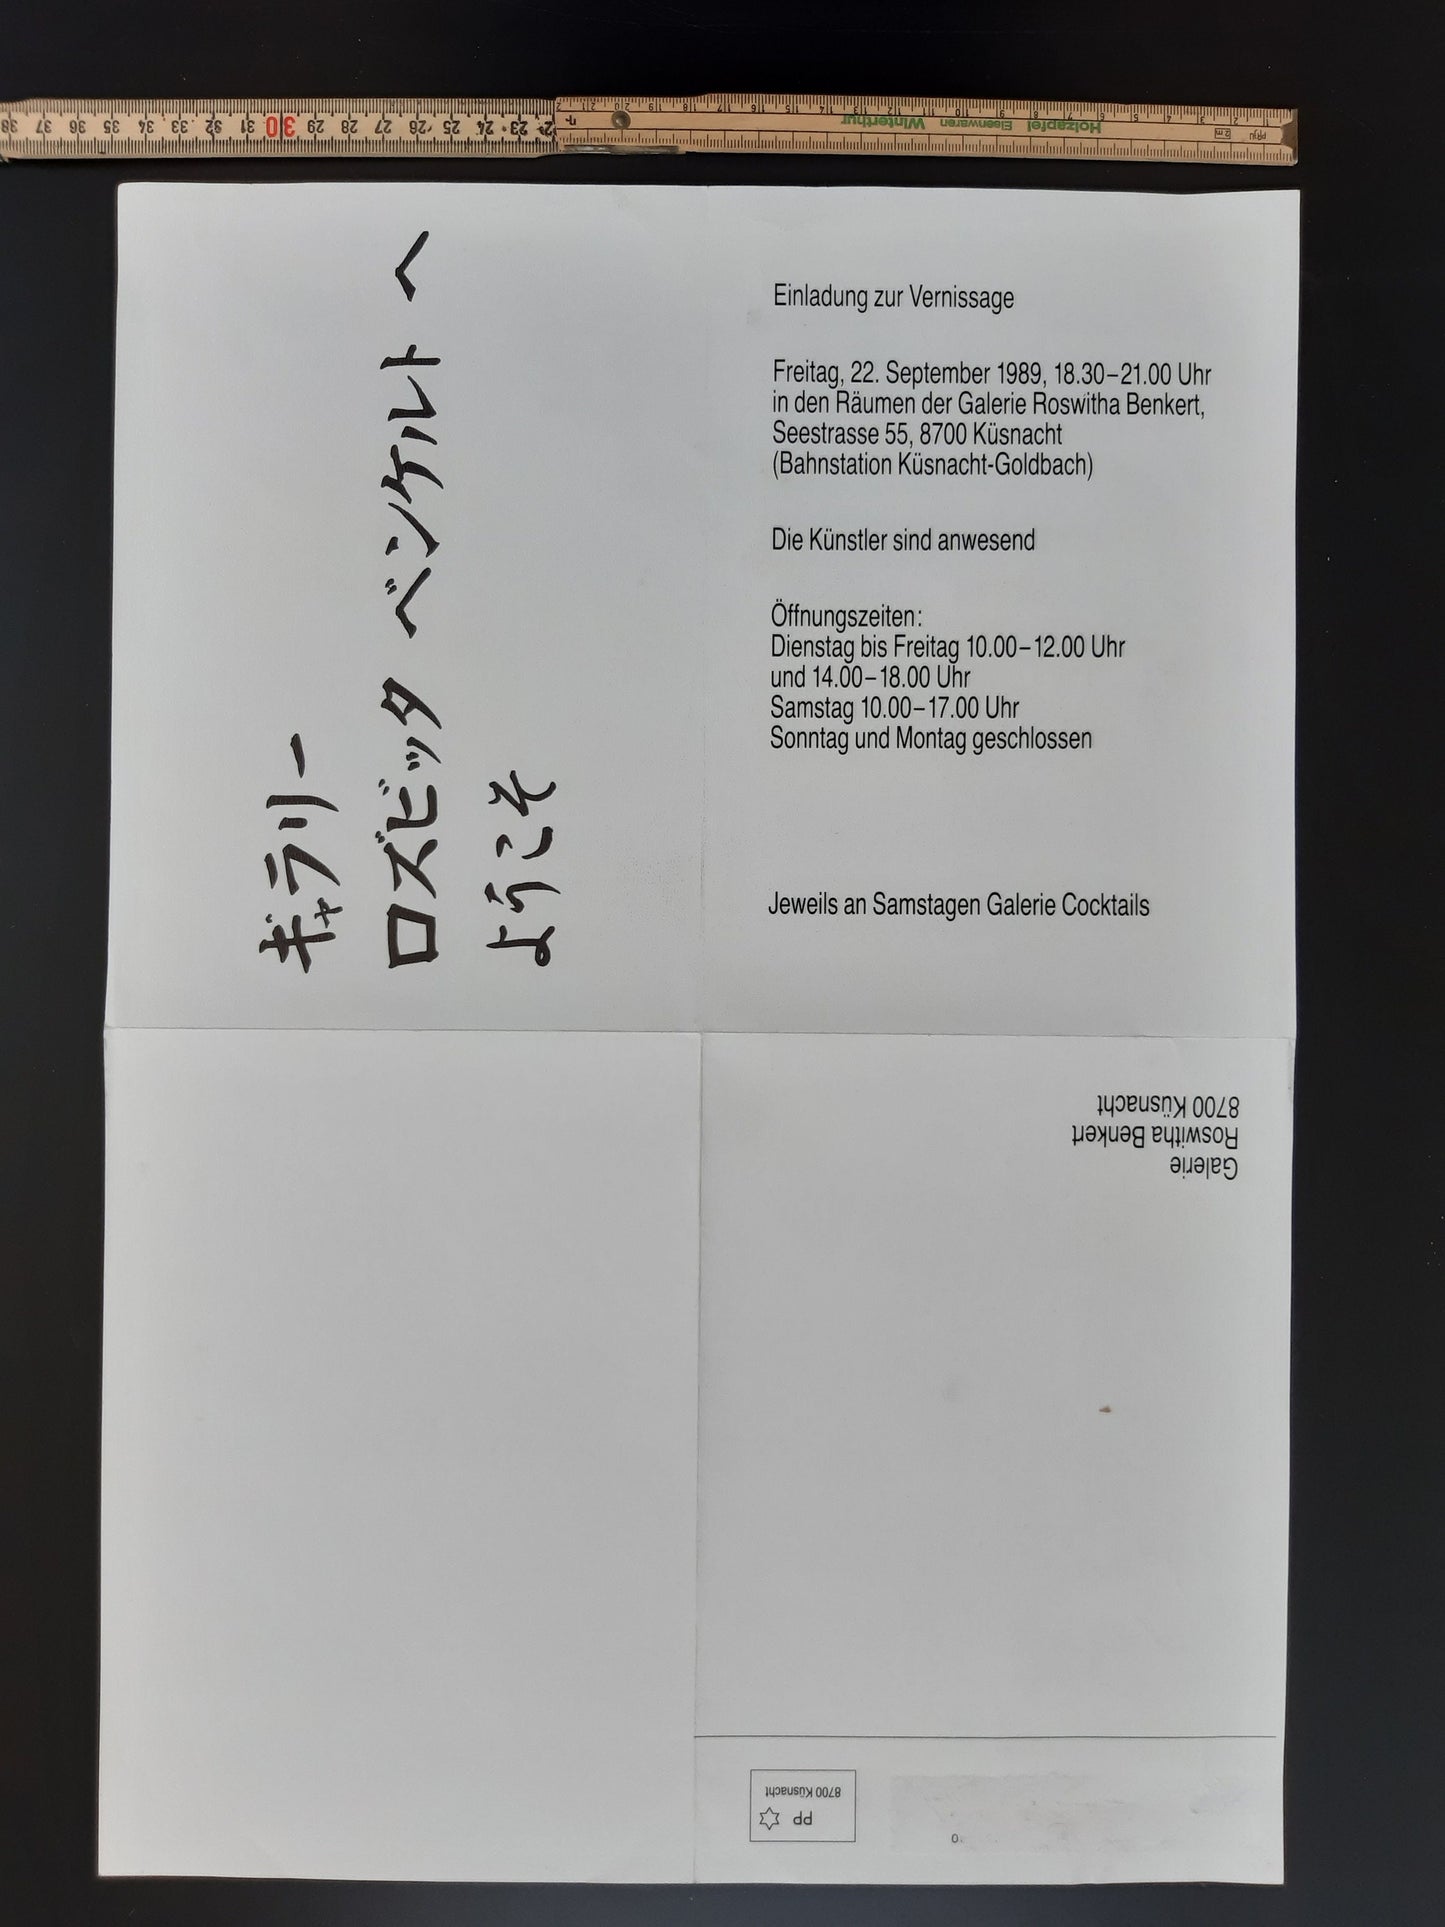 ギャラリー
ロズビッタ ベンケルト へ
ようこそ
Einladung zur Vernissage
Freitag, 22. September 1989, 18.30–21.00 Uhr
in den Räumen der Galerie Roswitha Benkert,
Seestrasse 55, 8700 Küsnacht
(Bahnstation Küsnacht-Goldbach)
Die Künstler sind anwesend
Öffnungszeiten:
Dienstag bis Freitag 10.00–12.00 Uhr
und 14.00–18.00 Uhr
Samstag 10.00–17.00 Uhr
Sonntag und Montag geschlossen
Jeweils an Samstagen Galerie Cocktails
Galerie
Roswitha Benkert
8700 Küsnacht
PP
8700 Küsnacht
Holzapfel Eisenwaren Winterthur
38 37 36 35 34 33 32 31 30 29 28 27 26 25 24 23